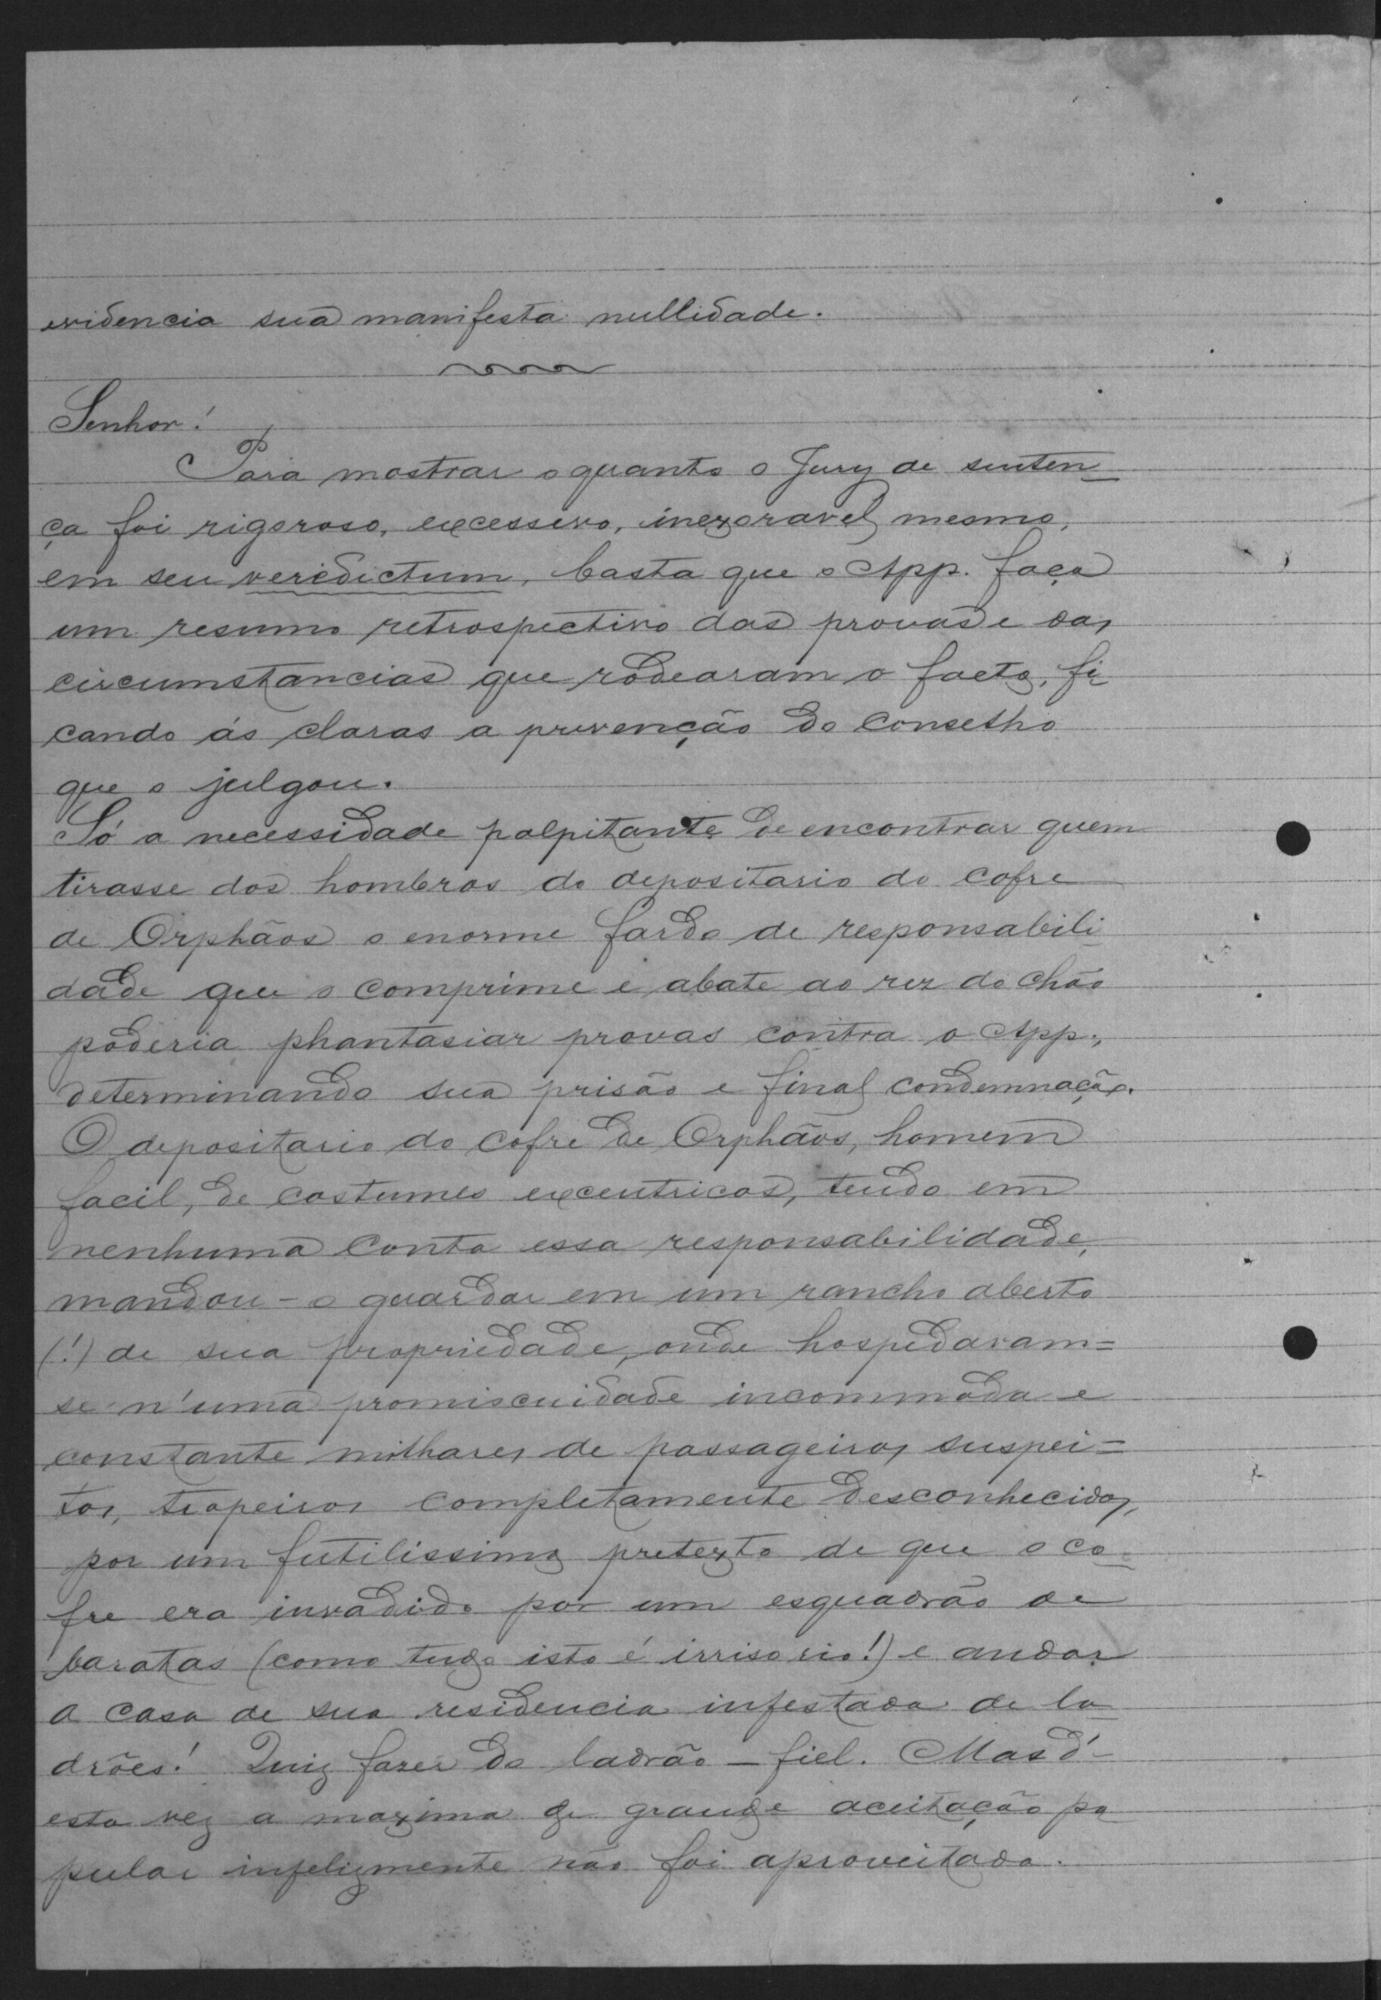 evidencia sua manifesta nullidade.
Senhor!
Para mostrar o quanto o Jury de senten-
ça foi rigoroso, excessivo, inexoravel mesmo,
em seu veredictum, basta que o App. faça
um resumo retrospectivo das provas e das
circumstancias que rodearam o facto, fi-
cando ás claras a prevenção do conselho
que o julgou.
Só a necessidade palpitante de encontrar quem
tirasse dos hombros do depositario do cofre
de Orphãos o enorme fardo de responsabili-
dade que o comprime e abate ao rez do chão
poderia phantasiar provas contra o App.,
determinando sua prisão e final condemnação.
O depositario do cofre de Orphãos, homem
facil, de costumes excentricos, tendo em
nenhuma conta essa responsabilidade,
mandou-o guardar em um rancho aberto
(!) de sua propriedade, onde hospedavam=
se n'uma promiscuidade incommoda e
constante milhares de passageiros suspei=
tos, tropeiros completamente desconhecidos,
por um futilissimo pretexto de que o co-
fre era invadido por um esquadrão de
baratas (como tudo isto é irrisorio!) e andar
a casa de sua residencia infestada de la-
drões! Quiz fazer do ladrão - fiel. Mas d'-
esta vez a maxima de grande aceitação po-
pular infelizmente não foi aproveitada.